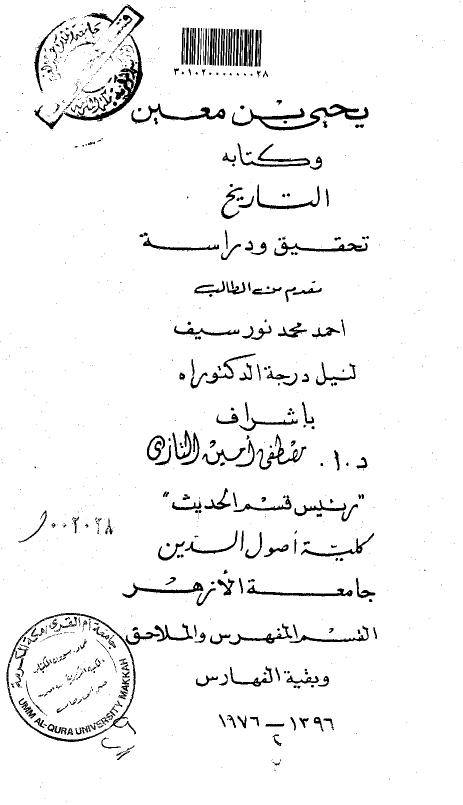 ٣٠١٠٢٠٠٠٠٠٠٠٢٨
يحيى بن معين
وكتابه
التاريخ
تحقيق ودراسة
مقدم من الطالب
احمد محمد نور سيف
لنيل درجة الدكتوراه
باشراف
د.ا. مصطفى أمين التازى
"رئيس قسم الحديث"
٠٠٢٠٢٨
كلية أصول الدين
جامعة الأزهر
القسم المفهرس والملاحق
وبقية الفهارس
١٣٩٦ – ١٩٧٦
٢
جامعة أم القرى مكة المكرمة
UMM AL-QURA UNIVERSITY MAKKAH